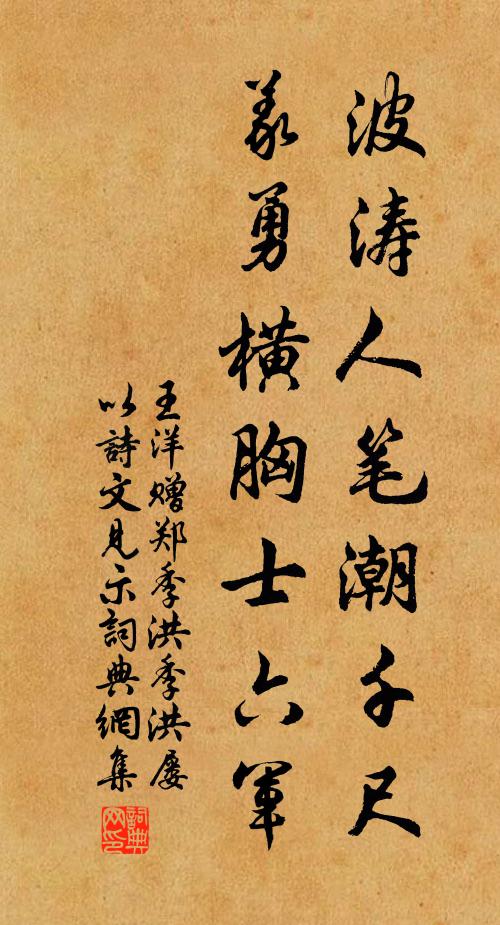 波涛人笔潮千尺
义勇横胸士六军
王洋赠郑季洪季洪屡
以詩文見示詞典網集
詞典网印